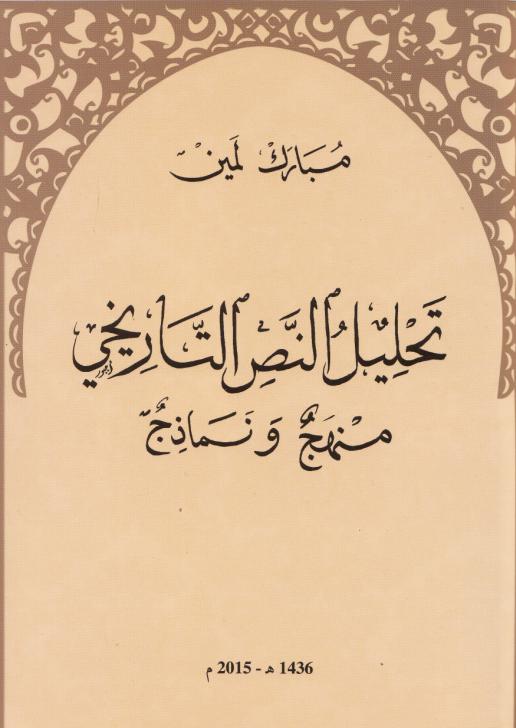 مُبَارَكْ لَمين
تَحْلِيلُ النَّصِ التَّارِيخِي
مَنْهَجٌ وَنَمَاذِجٌ
1436 هـ - 2015 م